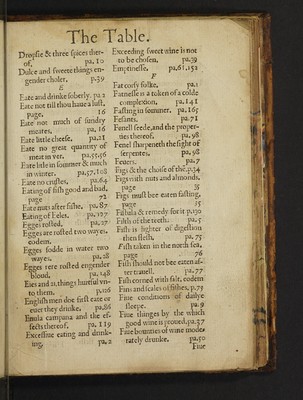 The Table.
Dropsie & three spices ther-
of, pa, 10
Dulce and sweete things en-
gender choler, p.39
E
Eate and drinke soberly. pa 2
Eate not till thou haue a lust,
page, 16
Eate not much of sundry
meates, pa, 16
Eate little cheese, pa,21
Eate no great quantity of
meat in ver. pa,55,56
Eate litle in sommer & much
in winter. pa,57,108
Eate no crustes, pa,64
Eating of fish good and bad,
page 72
Eate nuts after fishe, pa, 87
Eating of Eeles, pa, 127
Egges rosted, pa, 27
Egges are rosted two wayes,
eodem.
Egges sodde in water two
wayes, pa, 28
Egges rere rosted engender
bloud, pa, 148
Eies and 21, things hurtful vn-
to them. p,126
English men doe first eate or
euer they drinke, pa,86
Enula campana and the ef-
fects thereof, pa, 119
Excessiue eating and drink-
ing, pa, 2
Exceeding sweet wine is not
to be chosen, pa,39
Emptinesse, pa,61,152
F
Fat corsy folke, pa,1
Fatnesse is a token of a colde
complexion, pa, 141
Fasting in sommer, pa, 165
Fesants, pa, 71
Fenell seede, and the proper-
ties thereof, pa, 98
Fenel sharpeneth the sight of
serpentes, pa, 98
Feuers, pa, 7
Figs & the choise of thē, p,34
Figs with nuts and almonds,
page 35
Figs must bee eaten fasting,
page 35
Fistula & remedy for it p,130
Filth of the teeth, pa, 5
Fish is lighter of digestion
then flesh, pa, 75
Fish taken in the north sea,
page 76
Fish should not bee eaten af-
ter trauell, pa, 77
Fish corned with salt, eodem
Fins and scales of fishes, p,79
Fiue conditions of
sleepe, pa, 9
Fiue thinges by the which
good wine is proued, pa,37
Fiue bounties of wine mode-
rately dronke. pa,50
Fiue